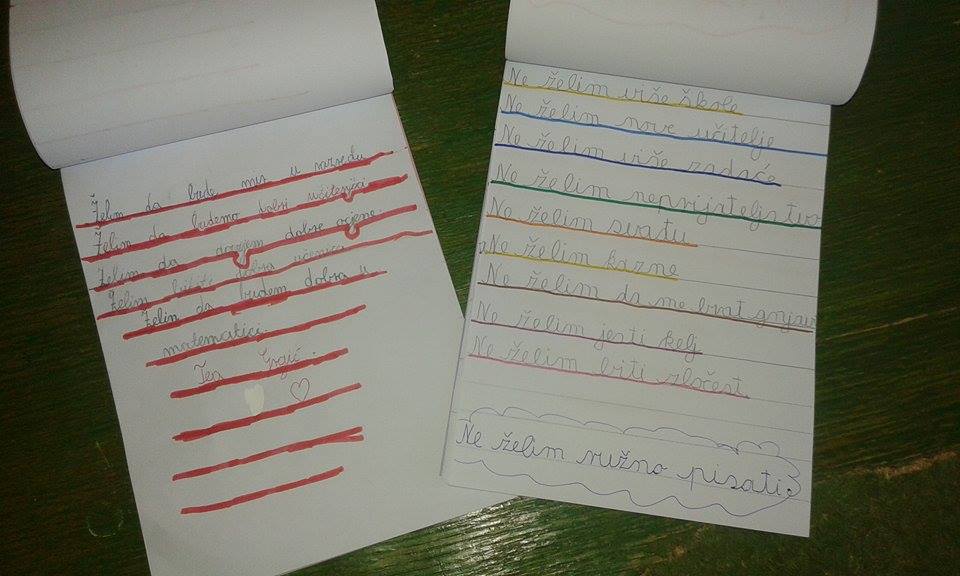 Želim da bude mir u razredu
Želim da budemo dobri učitenici
Želim da dobijem dobre ocjene.
Želim biti dobra učenica
Želim da budem dobra u
matematici.
Tea Grgić.
Ne želim više škole
Ne želim nove učitelje
Ne želim više zadaće
Ne želim neprijateljstvo
Ne želim svađu
Ne želim kazne
Ne želim da me brat gnjavi
Ne želim jesti kelj
Ne želim biti zločest
Ne želim ružno pisati.